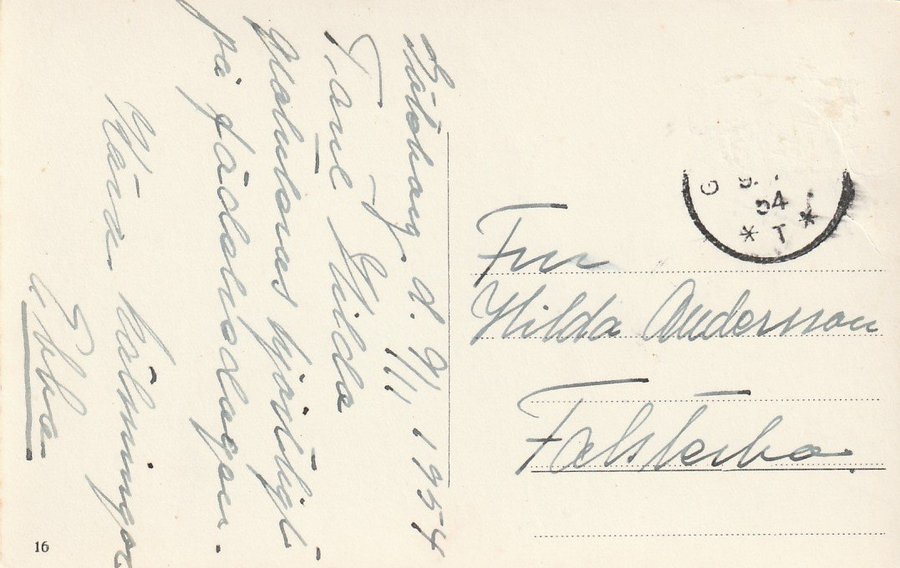 Göteborg d. 9/11 1954
Tant Hilda
gratuleras hjärtligt
på födelsedagen.
Kära hälsningar
Ebba
G 9.
54
* T *
Fru
Hilda Andersson
Falsterbo
16